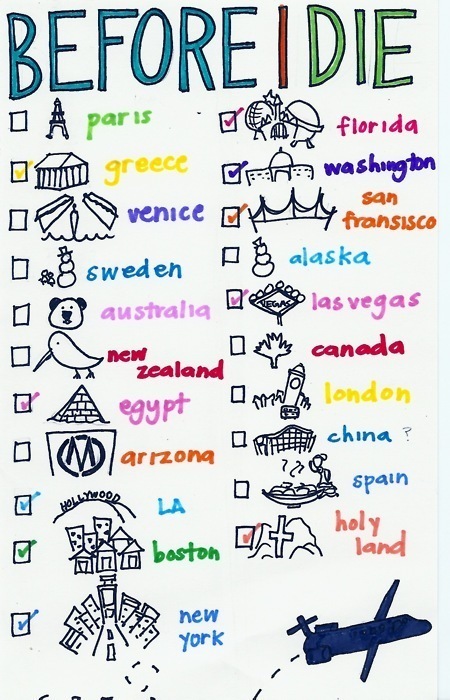 BEFORE I DIE
paris
greece
venice
sweden
australia
new
zealand
egypt
arizona
HOLLYWOOD
LA
boston
new
york
florida
washington
san
fransisco
alaska
VEGAS
las vegas
canada
london
china ?
spain
holy
land